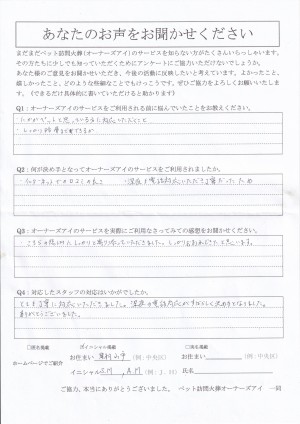 あなたのお声をお聞かせください
まだまだペット訪問火葬(オーナーズアイ)のサービスを知らない方がたくさんいらっしゃいます。
その方たちにも少しでも知っていただくためにアンケートにご協力いただけないでしょうか。
あなた様のご意見をお聞かせいただき、今後の活動に反映したいと考えています。よかったこと、
嬉しかったこと、どのような些細なことでもけっこうです。ぜひご協力をよろしくお願いいたします。
(できるだけ具体的に書いていただけると助かります)
Q1：オーナーズアイのサービスをご利用される前に悩んでいたことをお教えください。
Q2：何が決め手となってオーナーズアイのサービスをご利用されましたか。
・インターネットでの口コミの良さ ・深夜の電話対応いただき丁寧だったため
Q3：オーナーズアイのサービスを実際にご利用なさってみての感想をお聞かせください。
Q4：対応したスタッフの対応はいかがでしたか。
とても丁寧に対応いただきました。深夜の電話対応
ありがとうございました。
ホームページでご紹介
□匿名掲載 □イニシャル掲載 □実名掲載
お住まい (例：中央区) お住まい (例：中央区)
イニシャル (例：J. H) 氏名
ご協力、本当にありがとうございました。 ペット訪問火葬オーナーズアイ 一同